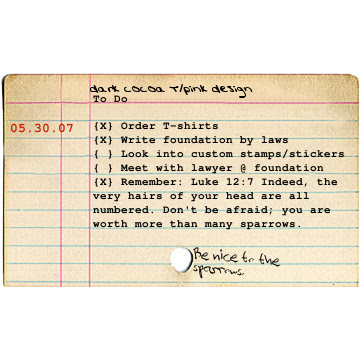 dark cocoa T/pink design
To Do
05.30.07
{X} Order T-shirts
{X} Write foundation by laws
{ } Look into custom stamps/stickers
{ } Meet with lawyer @ foundation
{X} Remember: Luke 12:7 Indeed, the
very hairs of your head are all
numbered. Don't be afraid; you are
worth more than many sparrows.
Be nice to the
sparrows.